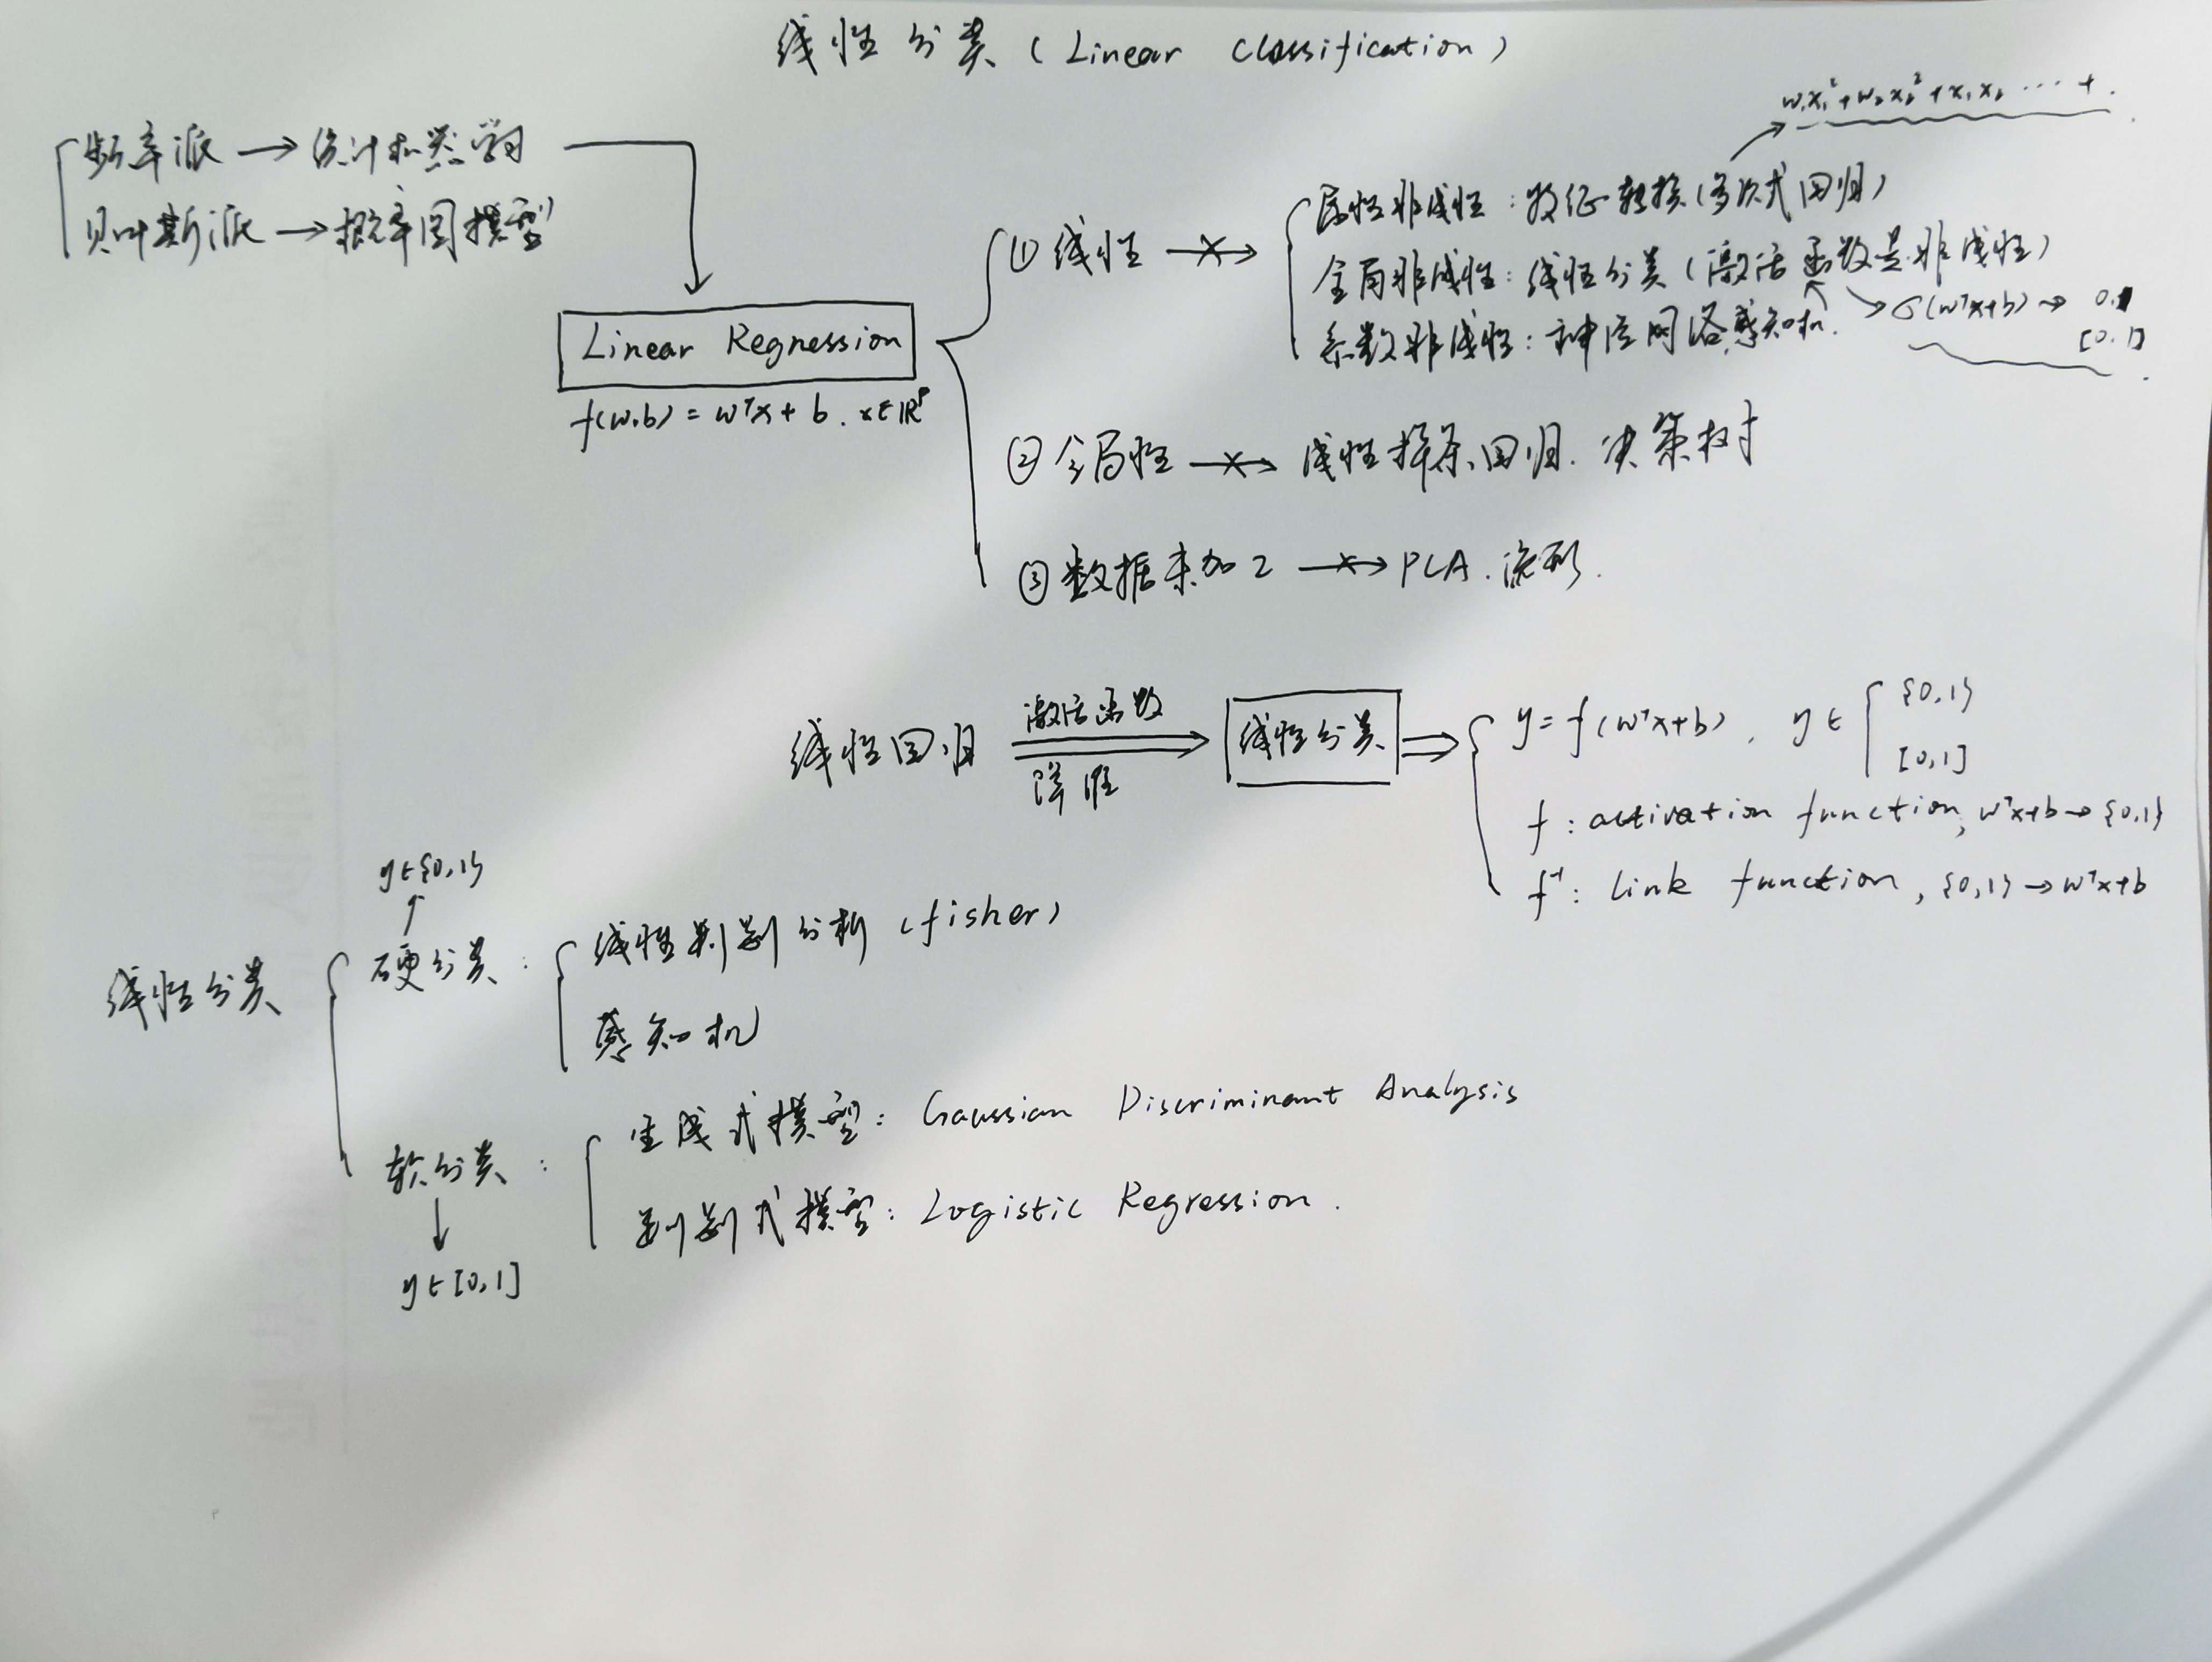 线性分类 (Linear Classification)
频率派 → 统计机器学习
贝叶斯派 → 概率图模型
Linear Regression
f(w,b) = wᵀx + b. x∈ℝᵖ
① 线性
属性非线性：特征转换（多次式回归）
w₁x₁²+w₂x₂²+x₁x₂ ⋯ +
全局非线性：线性分类（激活函数是非线性）
σ(wᵀx+b) → 0.1
[0.1]
系数非线性：神经网络，感知机.
② 全局性 线性样条回归. 决策树
③ 数据未加工 PCA. 流形.
线性回归 激活函数 降维 线性分类 ⇒
y = f(wᵀx+b), y∈ {0,1}
[0,1]
f: activation function, wᵀx+b → {0,1}
f⁻¹: link function, {0,1} → wᵀx+b
线性分类
y∈{0,1}
↑
硬分类：
线性判别分析 (fisher)
感知机
软分类：
↓
y∈[0,1]
生成式模型：Gaussian Discriminant Analysis
判别式模型：Logistic Regression.